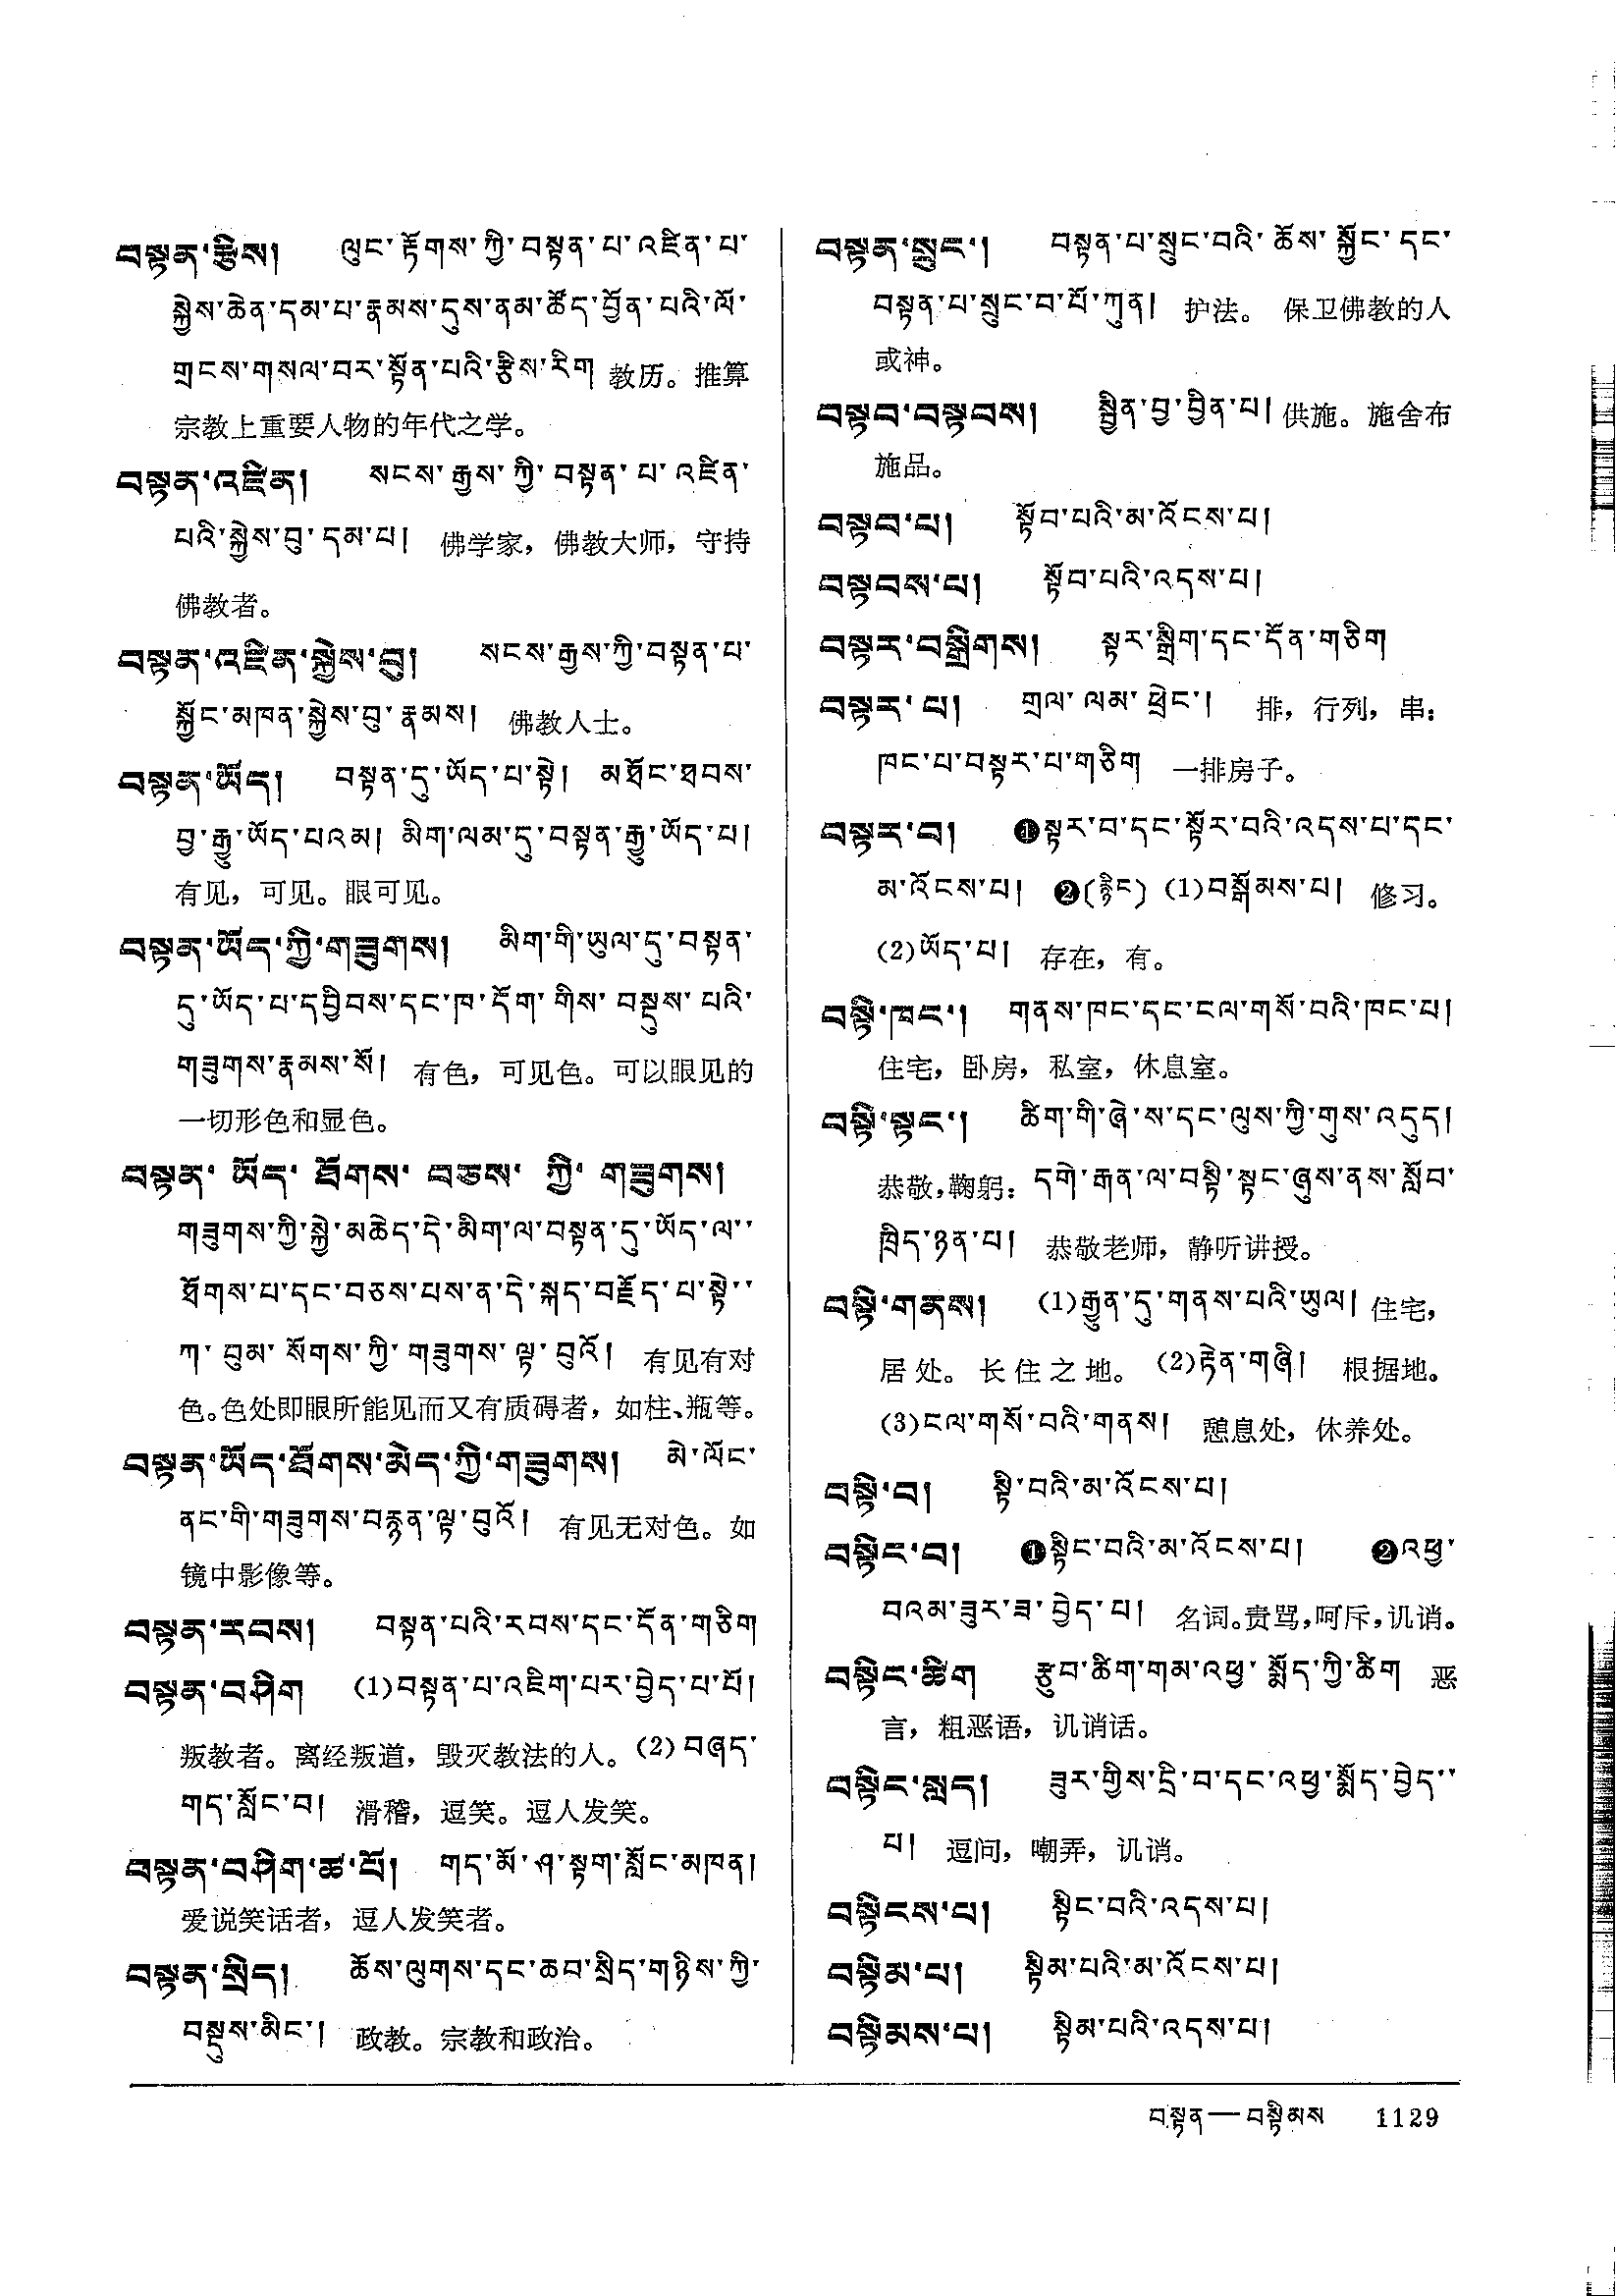 བསྟན་རྩིས། ལུང་རྟོགས་ཀྱི་བསྟན་པ་འཛིན་པ་
སྐྱེས་ཆེན་དམ་པ་རྣམས་དུས་ནམ་ཚོད་བྱོན་པའི་ལོ་
གྲངས་གསལ་བར་སྟོན་པའི་རྩིས་རིག 教历。推算
宗教上重要人物的年代之学。
བསྟན་འཛིན། སངས་རྒྱས་ཀྱི་བསྟན་པ་འཛིན་
པའི་སྐྱེས་བུ་དམ་པ། 佛学家，佛教大师，守持
佛教者。
བསྟན་འཛིན་སྐྱེས་བུ། སངས་རྒྱས་ཀྱི་བསྟན་པ་
སྐྱོང་མཁན་སྐྱེས་བུ་རྣམས། 佛教人士。
བསྟན་ཡོད། བསྟན་དུ་ཡོད་པ་སྟེ། མཐོང་ཐབས་
བྱ་རྒྱུ་ཡོད་པའམ། མིག་ལམ་དུ་བསྟན་རྒྱུ་ཡོད་པ།
有见，可见。眼可见。
བསྟན་ཡོད་ཀྱི་གཟུགས། མིག་གི་ཡུལ་དུ་བསྟན་
དུ་ཡོད་པ་དབྱིབས་དང་ཁ་དོག་གིས་བསྡུས་པའི་
གཟུགས་རྣམས་སོ། 有色，可见色。可以眼见的
一切形色和显色。
བསྟན་ཡོད་ཐོགས་བཅས་ཀྱི་གཟུགས།
གཟུགས་ཀྱི་སྐྱེ་མཆེད་དེ་མིག་ལ་བསྟན་དུ་ཡོད་ལ་་
ཐོགས་པ་དང་བཅས་པས་ན་དེ་སྐད་བརྗོད་པ་སྟེ་་
ཀ་བུམ་སོགས་ཀྱི་གཟུགས་ལྟ་བུའོ། 有见有对
色。色处即眼所能见而又有质碍者，如柱、瓶等。
བསྟན་ཡོད་ཐོགས་མེད་ཀྱི་གཟུགས། མེ་ལོང་
ནང་གི་གཟུགས་བརྙན་ལྟ་བུའོ། 有见无对色。如
镜中影像等。
བསྟན་རབས། བསྟན་པའི་རབས་དང་དོན་གཅིག
བསྟན་བཤིག (1)བསྟན་པ་འཇིག་པར་བྱེད་པ་པོ།
叛教者。离经叛道，毁灭教法的人。(2)བཞད་
གད་སློང་བ། 滑稽，逗笑。逗人发笑。
བསྟན་བཤིག་ཚ་པོ། གད་མོ་ཤ་སྟག་སློང་མཁན།
爱说笑话者，逗人发笑者。
བསྟན་སྲིད། ཆོས་ལུགས་དང་ཆབ་སྲིད་གཉིས་ཀྱི་
བསྡུས་མིང་། 政教。宗教和政治。
བསྟན་སྲུང་། བསྟན་པ་སྲུང་བའི་ཆོས་སྐྱོང་དང་
བསྟན་པ་སྲུང་བ་པོ་ཀུན། 护法。 保卫佛教的人
或神。
བསྟབ་བསྟབས། སྦྱིན་བྱ་བྱིན་པ། 供施。施舍布
施品。
བསྟབ་པ། སྟོབ་པའི་མ་འོངས་པ།
བསྟབས་པ། སྟོབ་པའི་འདས་པ།
བསྟར་བསྒྲིགས། སྟར་སྒྲིག་དང་དོན་གཅིག
བསྟར་པ། གྲལ་ལམ་ཕྲེང་། 排，行列，串：
ཁང་པ་བསྟར་པ་གཅིག 一排房子。
བསྟར་བ། ❶སྟར་བ་དང་སྟོར་བའི་འདས་པ་དང་
མ་འོངས་པ། ❷(རྙིང) (1)བསྒོམས་པ། 修习。
(2)ཡོད་པ། 存在，有。
བསྟི་ཁང་། གནས་ཁང་དང་ངལ་གསོ་བའི་ཁང་པ།
住宅，卧房，私室，休息室。
བསྟི་སྟང་། ཚིག་གི་ཞེ་ས་དང་ལུས་ཀྱི་གུས་འདུད།
恭敬，鞠躬：དགེ་རྒན་ལ་བསྟི་སྟང་ཞུས་ནས་སློབ་
ཁྲིད་ཉན་པ། 恭敬老师，静听讲授。
བསྟི་གནས། (1)རྒྱུན་དུ་གནས་པའི་ཡུལ། 住宅，
居处。长住之地。(2)རྟེན་གཞི། 根据地。
(3)ངལ་གསོ་བའི་གནས། 憩息处，休养处。
བསྟི་བ། སྟི་བའི་མ་འོངས་པ།
བསྟིང་བ། ❶སྟིང་བའི་མ་འོངས་པ། ❷འཕྱ་
བའམ་ཟུར་ཟ་བྱེད་པ། 名词。责骂，呵斥，讥诮。
བསྟིང་ཚིག རྩུབ་ཚིག་གམ་འཕྱ་སྨོད་ཀྱི་ཚིག 恶
言，粗恶语，讥诮话。
བསྟིང་སླད། ཟུར་གྱིས་དྲི་བ་དང་འཕྱ་སྨོད་བྱེད་་
པ། 逗问，嘲弄，讥诮。
བསྟིངས་པ། སྟིང་བའི་འདས་པ།
བསྟིམ་པ། སྟིམ་པའི་མ་འོངས་པ།
བསྟིམས་པ། སྟིམ་པའི་འདས་པ།
བསྟན—བསྟིམས 1129